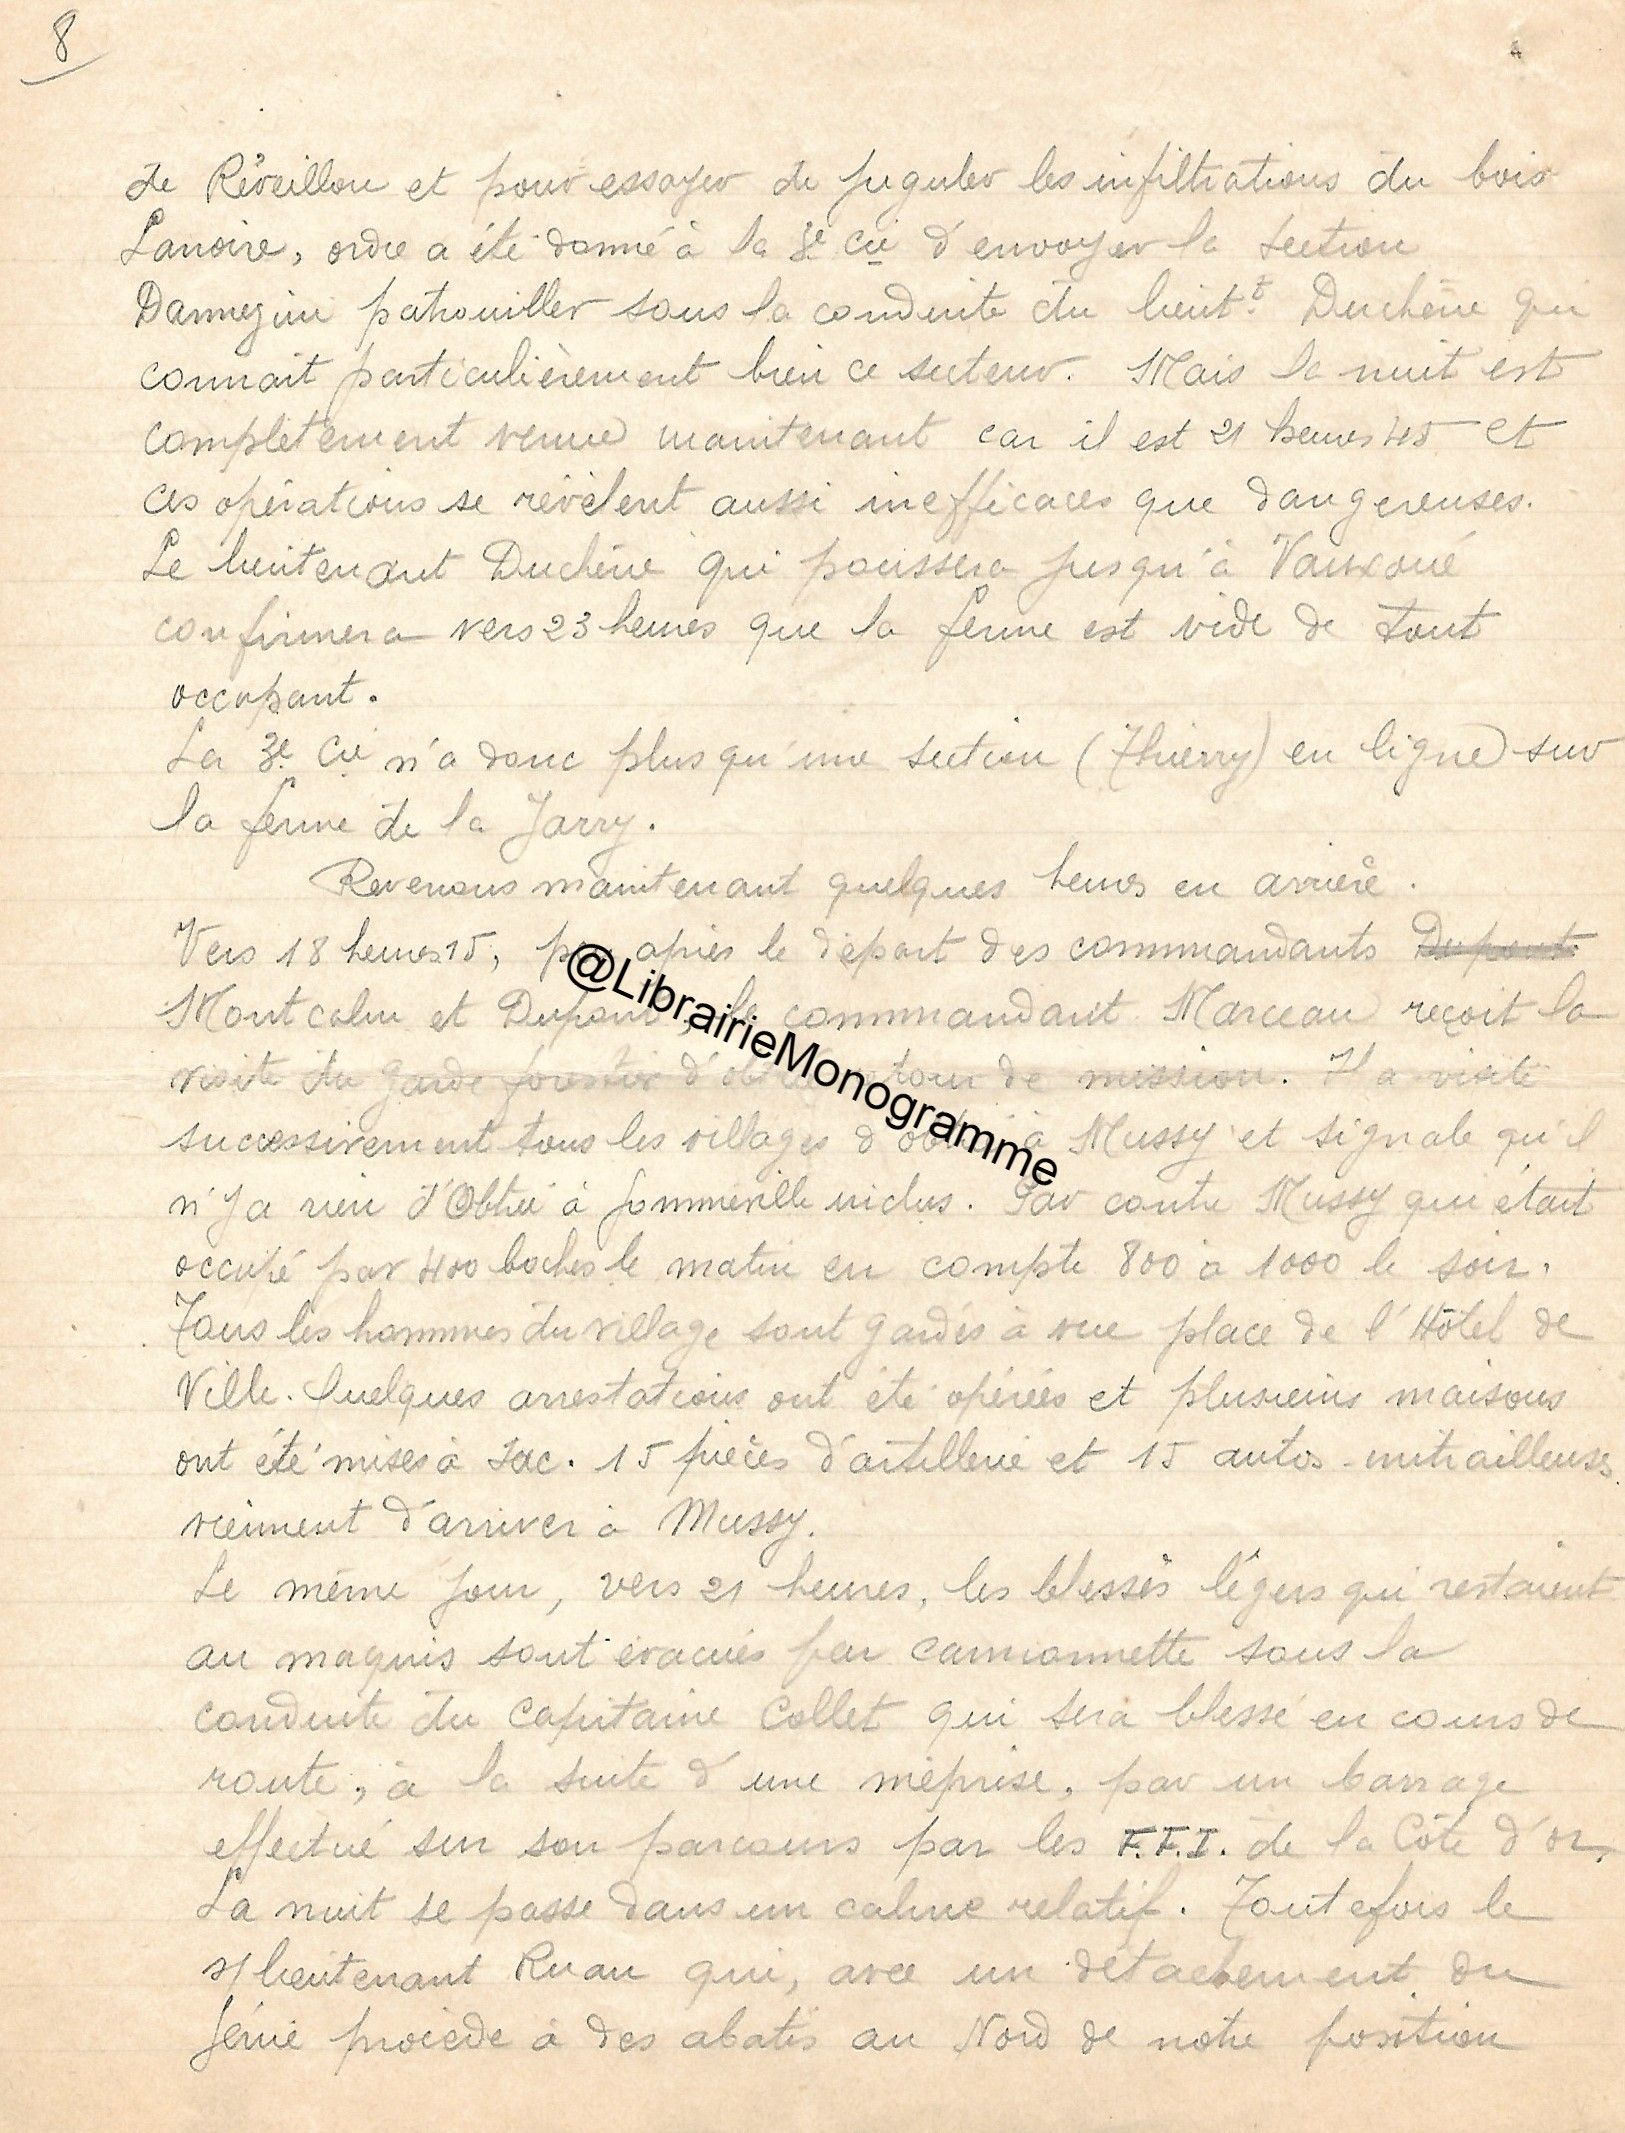 8
de Réveillon et pour essayer de juguler les infiltrations du bois
Lanoire, ordre a été donné à la 3e Cie d'envoyer la section
Dannezini patrouiller sous la conduite du lieutt. Duchêne qui
connait particulièrement bien ce secteur. Mais la nuit est
complètement venue maintenant car il est 21 heures 45 et
ces opérations se révèlent aussi inefficaces que dangereuses.
Le lieutenant Duchêne qui poussera jusqu'à Vauxoué
confirmera vers 23 heures que la ferme est vide de tout
occupant.
La 3e Cie n'a donc plus qu'une section (Thierry) en ligne sur
la ferme de la Jarry.
Revenons maintenant quelques heures en arrière.
Vers 18 heures 15, peu après le départ des commandants Dupont
Montcalm et Dupont, le commandant Marceau reçoit la
visite du garde forestier d' de mission. Il a visité
successivement tous les villages d' à Mussy et signale qu'il
n'y a rien d'Obtrée à Gommeville inclus. Par contre Mussy qui était
occupé par 400 boches le matin en compte 800 à 1000 le soir.
Tous les hommes du village sont gardés à vue place de l'Hôtel de
Ville. Quelques arrestations ont été opérées et plusieurs maisons
ont été mises à sac. 15 pièces d'artillerie et 15 autos-mitrailleuses
viennent d'arriver à Mussy.
Le même jour, vers 21 heures, les blessés légers qui restaient
au maquis sont évacués par camionnette sous la
conduite du Capitaine Collet qui sera blessé en cours de
route, à la suite d'une méprise, par un barrage
effectué sur son parcours par les F.F.I. de la Côte d'or.
La nuit se passe dans un calme relatif. Toutefois le
s/lieutenant Ruau qui, avec un détachement du
Génie procède à des abatis au Nord de notre position
@LibrairieMonogramme